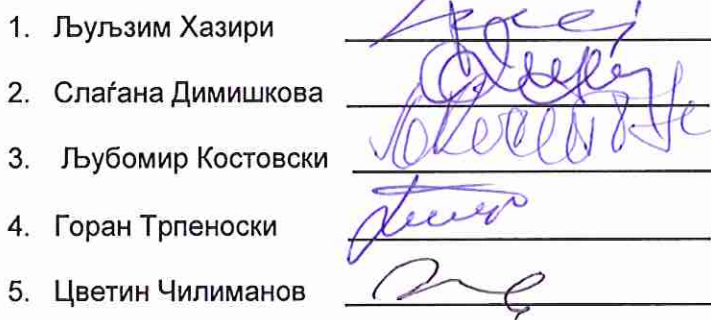 1. Љуљзим Хазири
2. Слаѓана Димишкова
3. Љубомир Костовски
4. Горан Трпеноски
5. Цветин Чилиманов